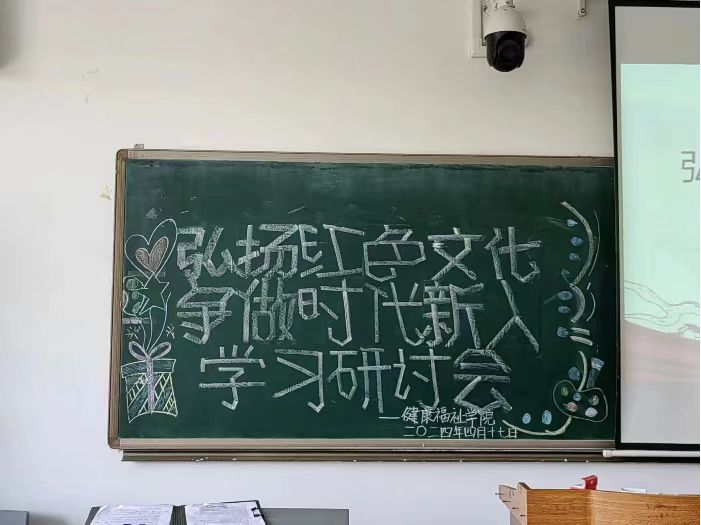 弘扬红色文化
争做时代新人
学习研讨会
——健康福祉学院
二〇二四年四月十七日
弘